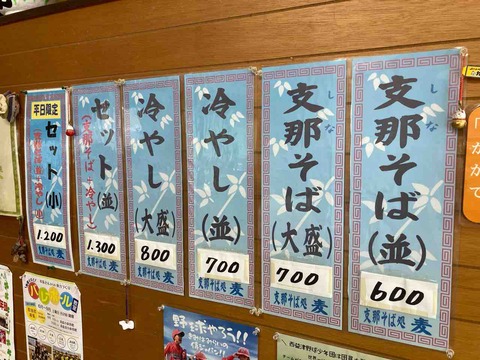 支那そば(並)
しな
600
支那そば処 麦
支那そば(大盛)
しな
700
支那そば処 麦
冷やし(並)
700
支那そば処 麦
冷やし(大盛)
800
支那そば処 麦
セット(並)
(支那そば・冷やし)
1.300
支那そば処 麦
平日限定
セット(小)
1.200
支那そば処 麦
野球やろう!!